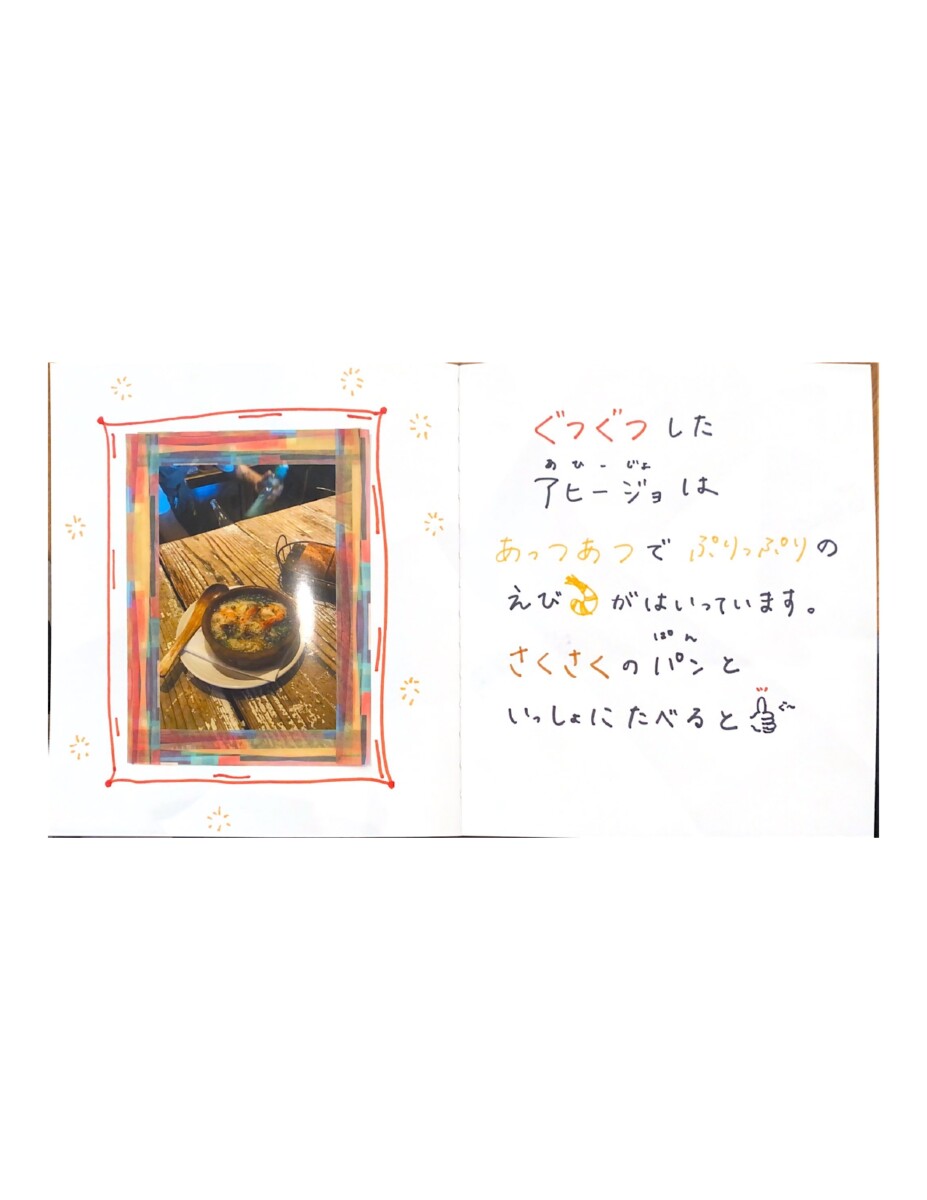 ぐつぐつした
あひーじょ
アヒージョは
あっつあつでぷりっぷりの
えびがはいっています。
ぱん
さくさくのパンと
いっしょにたべると
ぐ〜